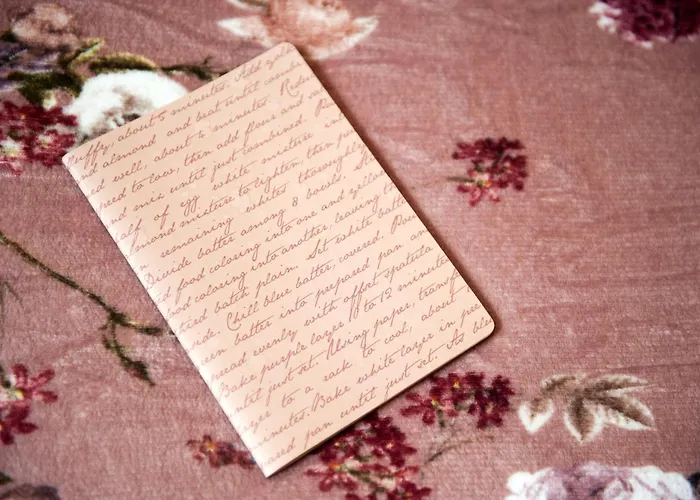 fluffy, about 5 minutes. Add yolks
and almond and beat until comb
ed well, about 2 minutes. Reduce
peed to low, then add flour and sa
nd mix until just combined. Pou
alf of egg white mixture in
mond mixture to lighten, then po
n remaining whites thoroughly
Divide batter among 8 bowls. St
d food coloring into one and yellow
ood coloring into another, leaving th
tired batch plain. Set white batt
side. Chill blue batter, covered. Pou
een batter into prepared pan an
pread evenly with offset spatula
Bake purple layer 8 to 12 minutes
until just set. Using paper, transf
ayer to a rack to cool, about
minutes. Bake white layer in pre
ared pan until just set. As ble